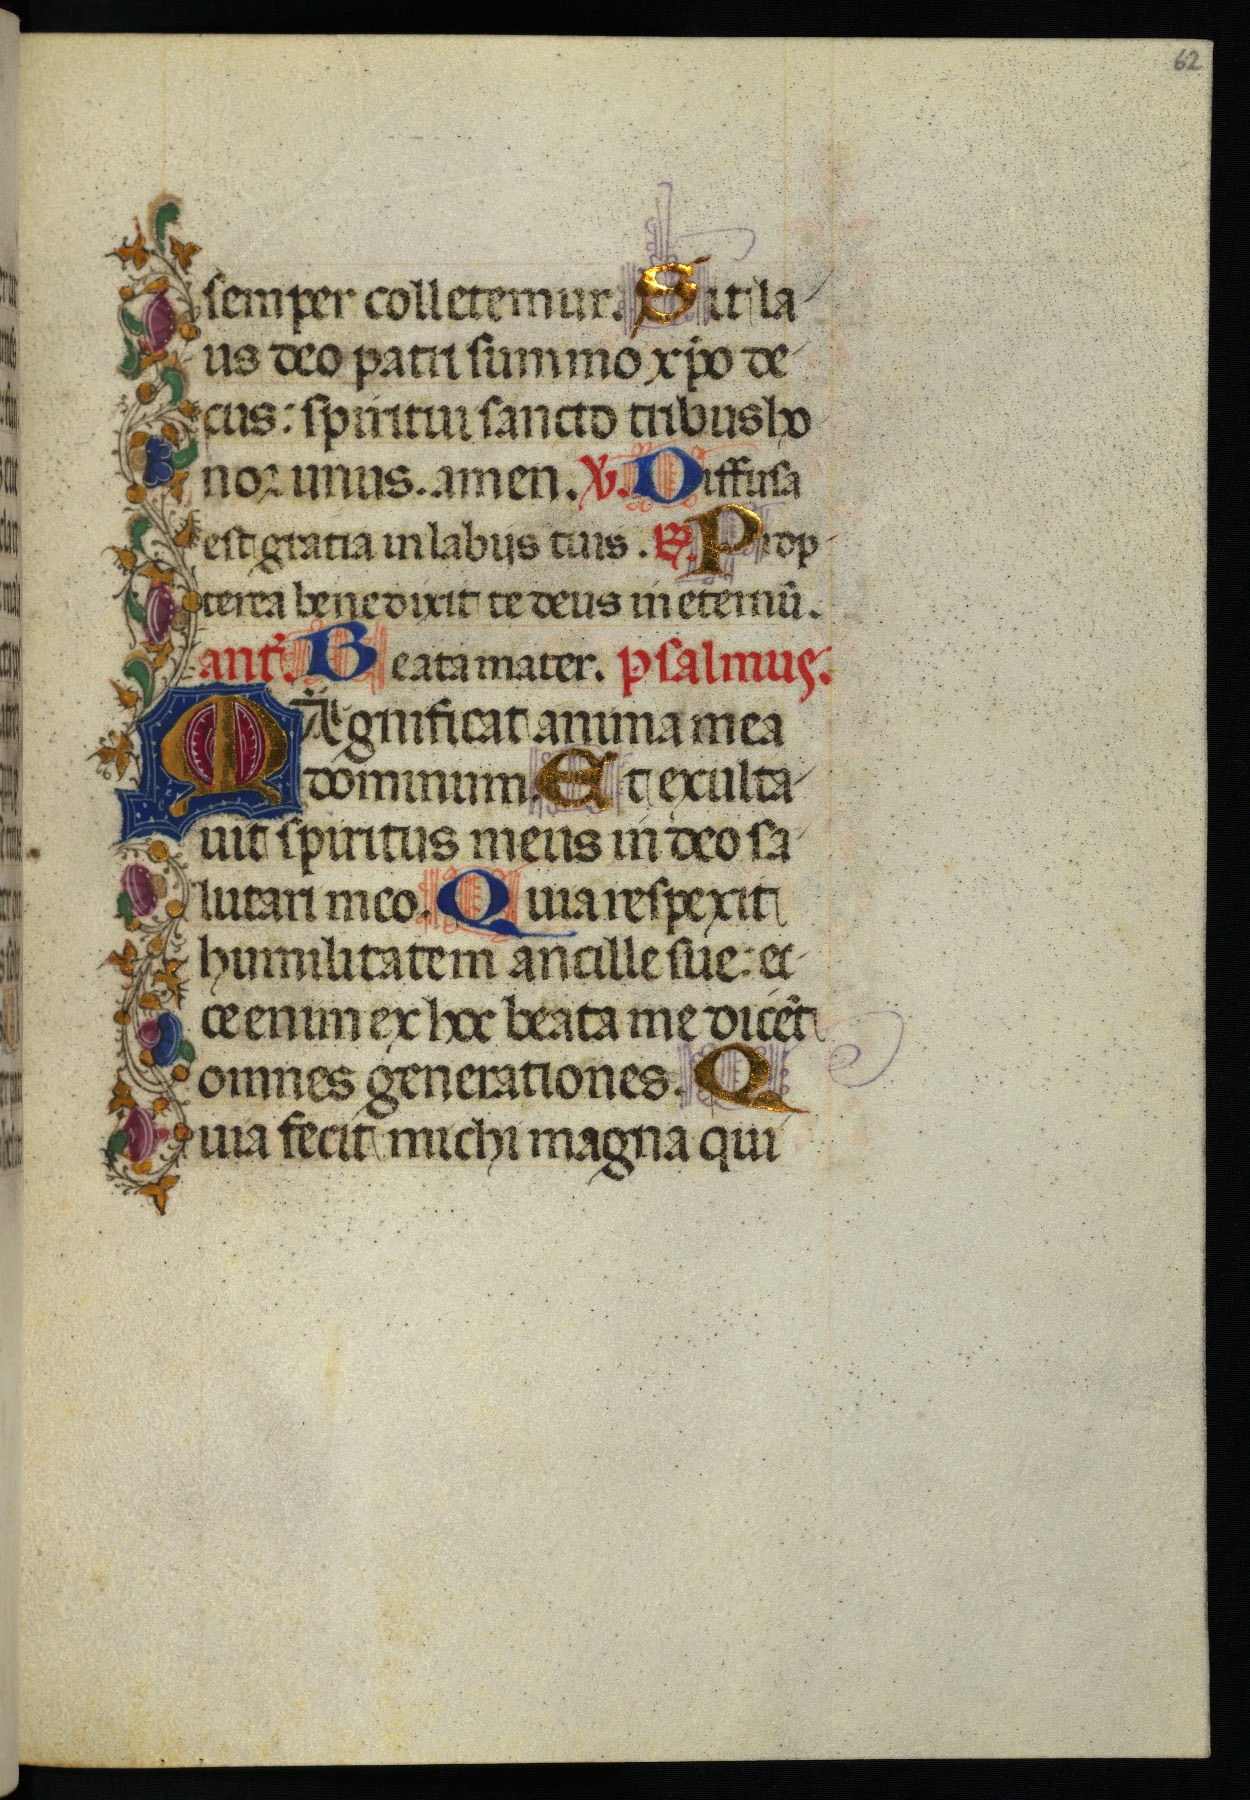 62
semper colletemur. Sit la-
us deo patri summo xpo de-
cus: spiritui sancto tribus ho
nor unus. amen. V. Diffusa
est gratia in labijs tuis. R. Prop-
terea benedixit te deus in eternū.
ant. Beata mater. psalmus.
MAgnificat anima mea
dominum. Et exulta-
uit spiritus meus in deo sa-
lutari meo. Quia respexit
humilitatem ancille sue: ec-
ce enim ex hoc beata me dicēt
omnes generationes. Q
uia fecit michi magna qui